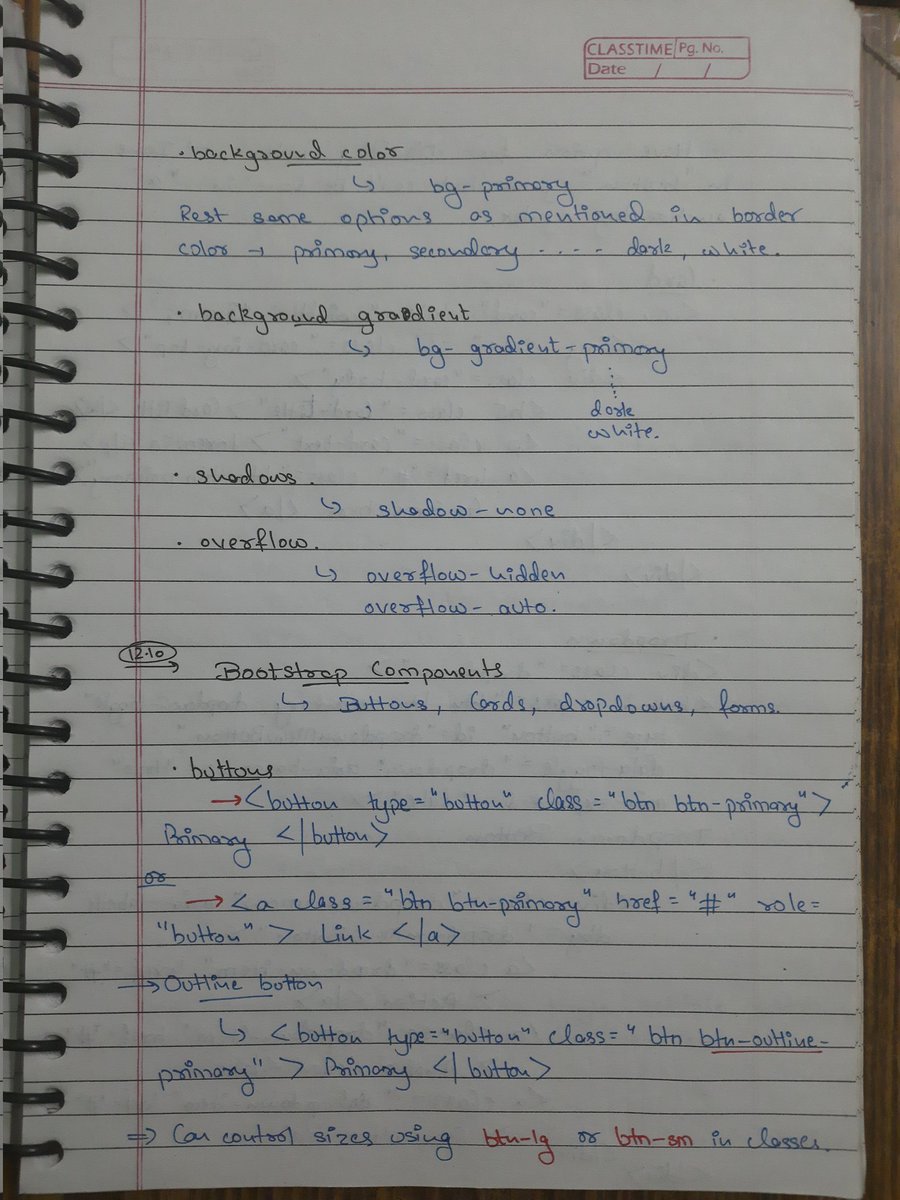 CLASSTIME Pg. No.
Date / /
· background color
↳ bg-primary
Rest same options as mentioned in border
color → primary, secondary ..... dark, white.
· background gradient
↳ bg-gradient-primary
dark
white.
· shadows.
↳ shadow-none
· overflow.
↳ overflow-hidden
overflow-auto.
12.10
Bootstrap Components
↳ Buttons, Cards, dropdowns, forms.
· buttons
→ <button type="button" class="btn btn-primary">
Primary </button>
or
→ <a class="btn btn-primary" href="#" role=
"button"> Link </a>
→ Outline button
↳ <button type="button" class="btn btn-outline-
primary"> Primary </button>
⇒ Can control sizes using btn-lg or btn-sm in classes.